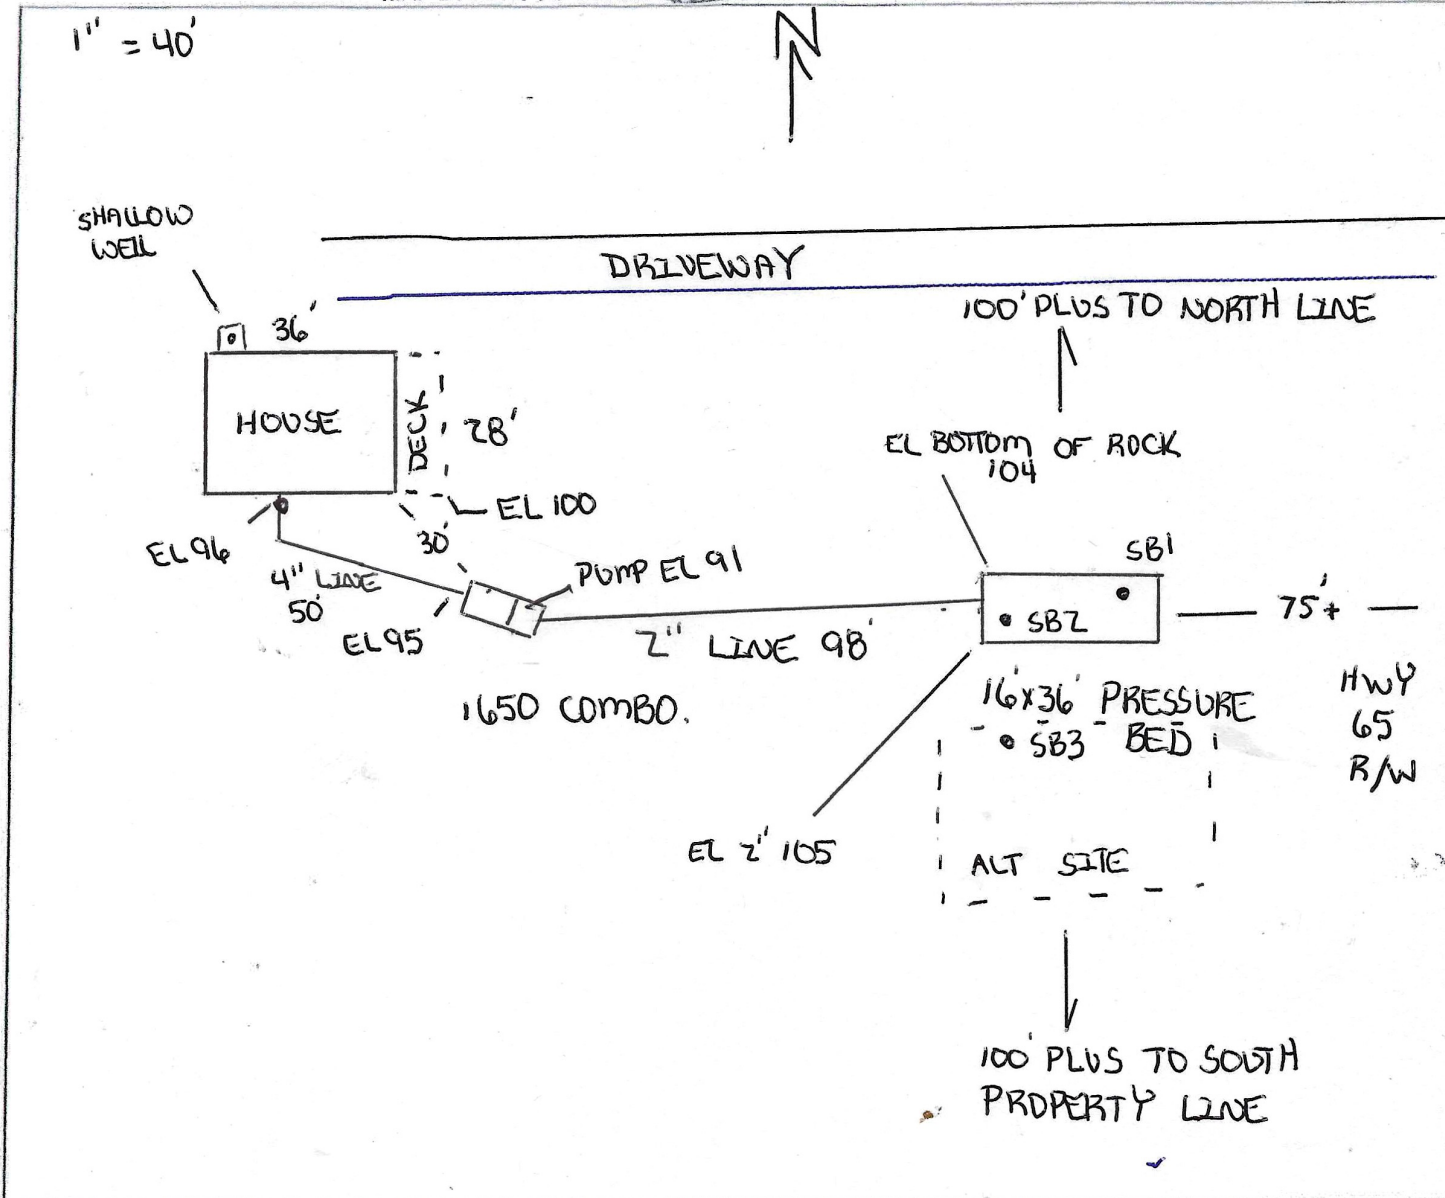 1" = 40'
N
SHALLOW
WELL
DRIVEWAY
100' PLUS TO NORTH LINE
36'
HOUSE
DECK
28'
EL BOTTOM OF ROCK
104
EL 100
EL 96
30'
4" LINE
50'
PUMP EL 91
SB1
EL 95
SB2
75'+
2" LINE 98'
1650 COMBO.
16'x36' PRESSURE
BED
SB3
HWY
65
R/W
EL 2" 105
ALT SITE
100' PLUS TO SOUTH
PROPERTY LINE